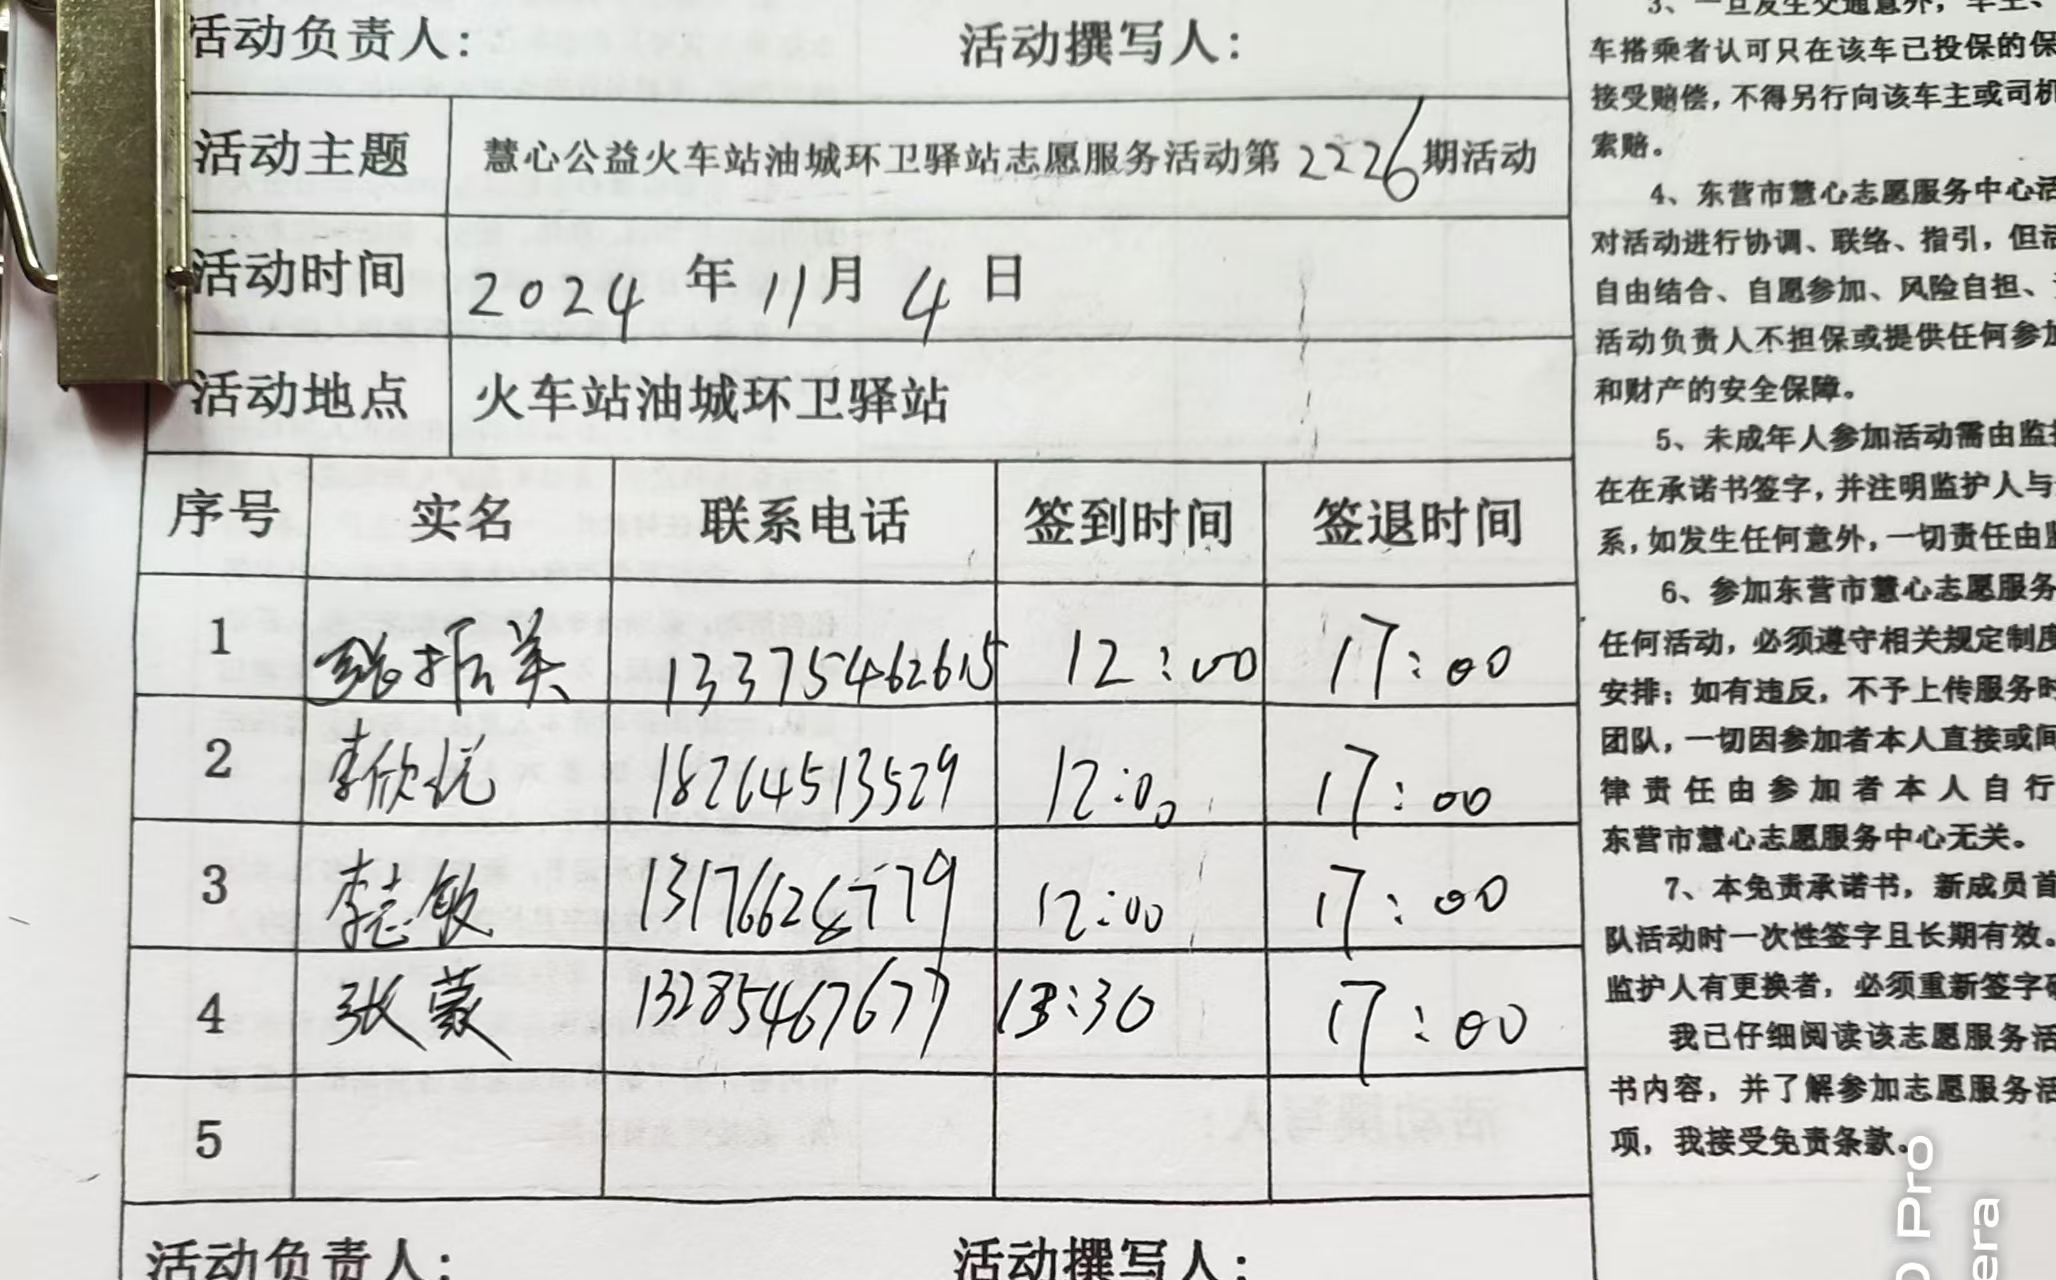 活动负责人：
活动撰写人：
活动主题
慧心公益火车站油城环卫驿站志愿服务活动第2226期活动
活动时间
2024年11月4日
活动地点
火车站油城环卫驿站
序号 实名 联系电话 签到时间 签退时间
1 振英 13375462615 12:00 17:00
2 李欣悦 18264513529 12:00 17:00
3 李志敏 12:00 17:00
4 张蒙 13285467677 13:30 17:00
5
活动负责人：
活动撰写人：
3、一旦发生交通意外，车主、
车搭乘者认可只在该车已投保的保
接受赔偿，不得另行向该车主或司机
索赔。
4、东营市慧心志愿服务中心活
对活动进行协调、联络、指引，但活
自由结合、自愿参加、风险自担、
活动负责人不担保或提供任何参加
和财产的安全保障。
5、未成年人参加活动需由监护
在在承诺书签字，并注明监护人与
系，如发生任何意外，一切责任由监
6、参加东营市慧心志愿服务
任何活动，必须遵守相关规定制度
安排；如有违反，不予上传服务时
团队，一切因参加者本人直接或间
律责任由参加者本人自行
东营市慧心志愿服务中心无关。
7、本免责承诺书，新成员首
队活动时一次性签字且长期有效。
监护人有更换者，必须重新签字确
我已仔细阅读该志愿服务活
书内容，并了解参加志愿服务活
项，我接受免责条款。
Pro
era